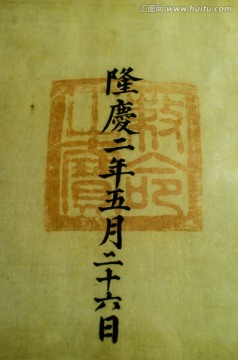 隆慶二年五月二十六日
敕命
之寶
huitu.com